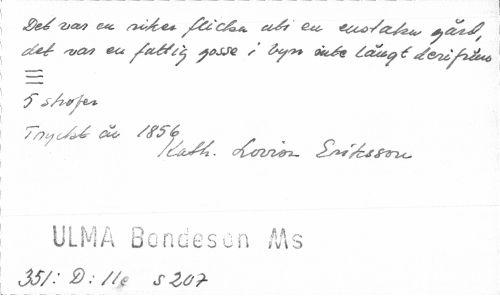 Det var en riker flicka uti en enstaken gård,
det var en fattig gosse i byn inte långt derifrån
5 strofer
Tryckt år 1856
Kath. Lovisa Eriksson
ULMA Bondeson Ms
351: D: 11e s 207